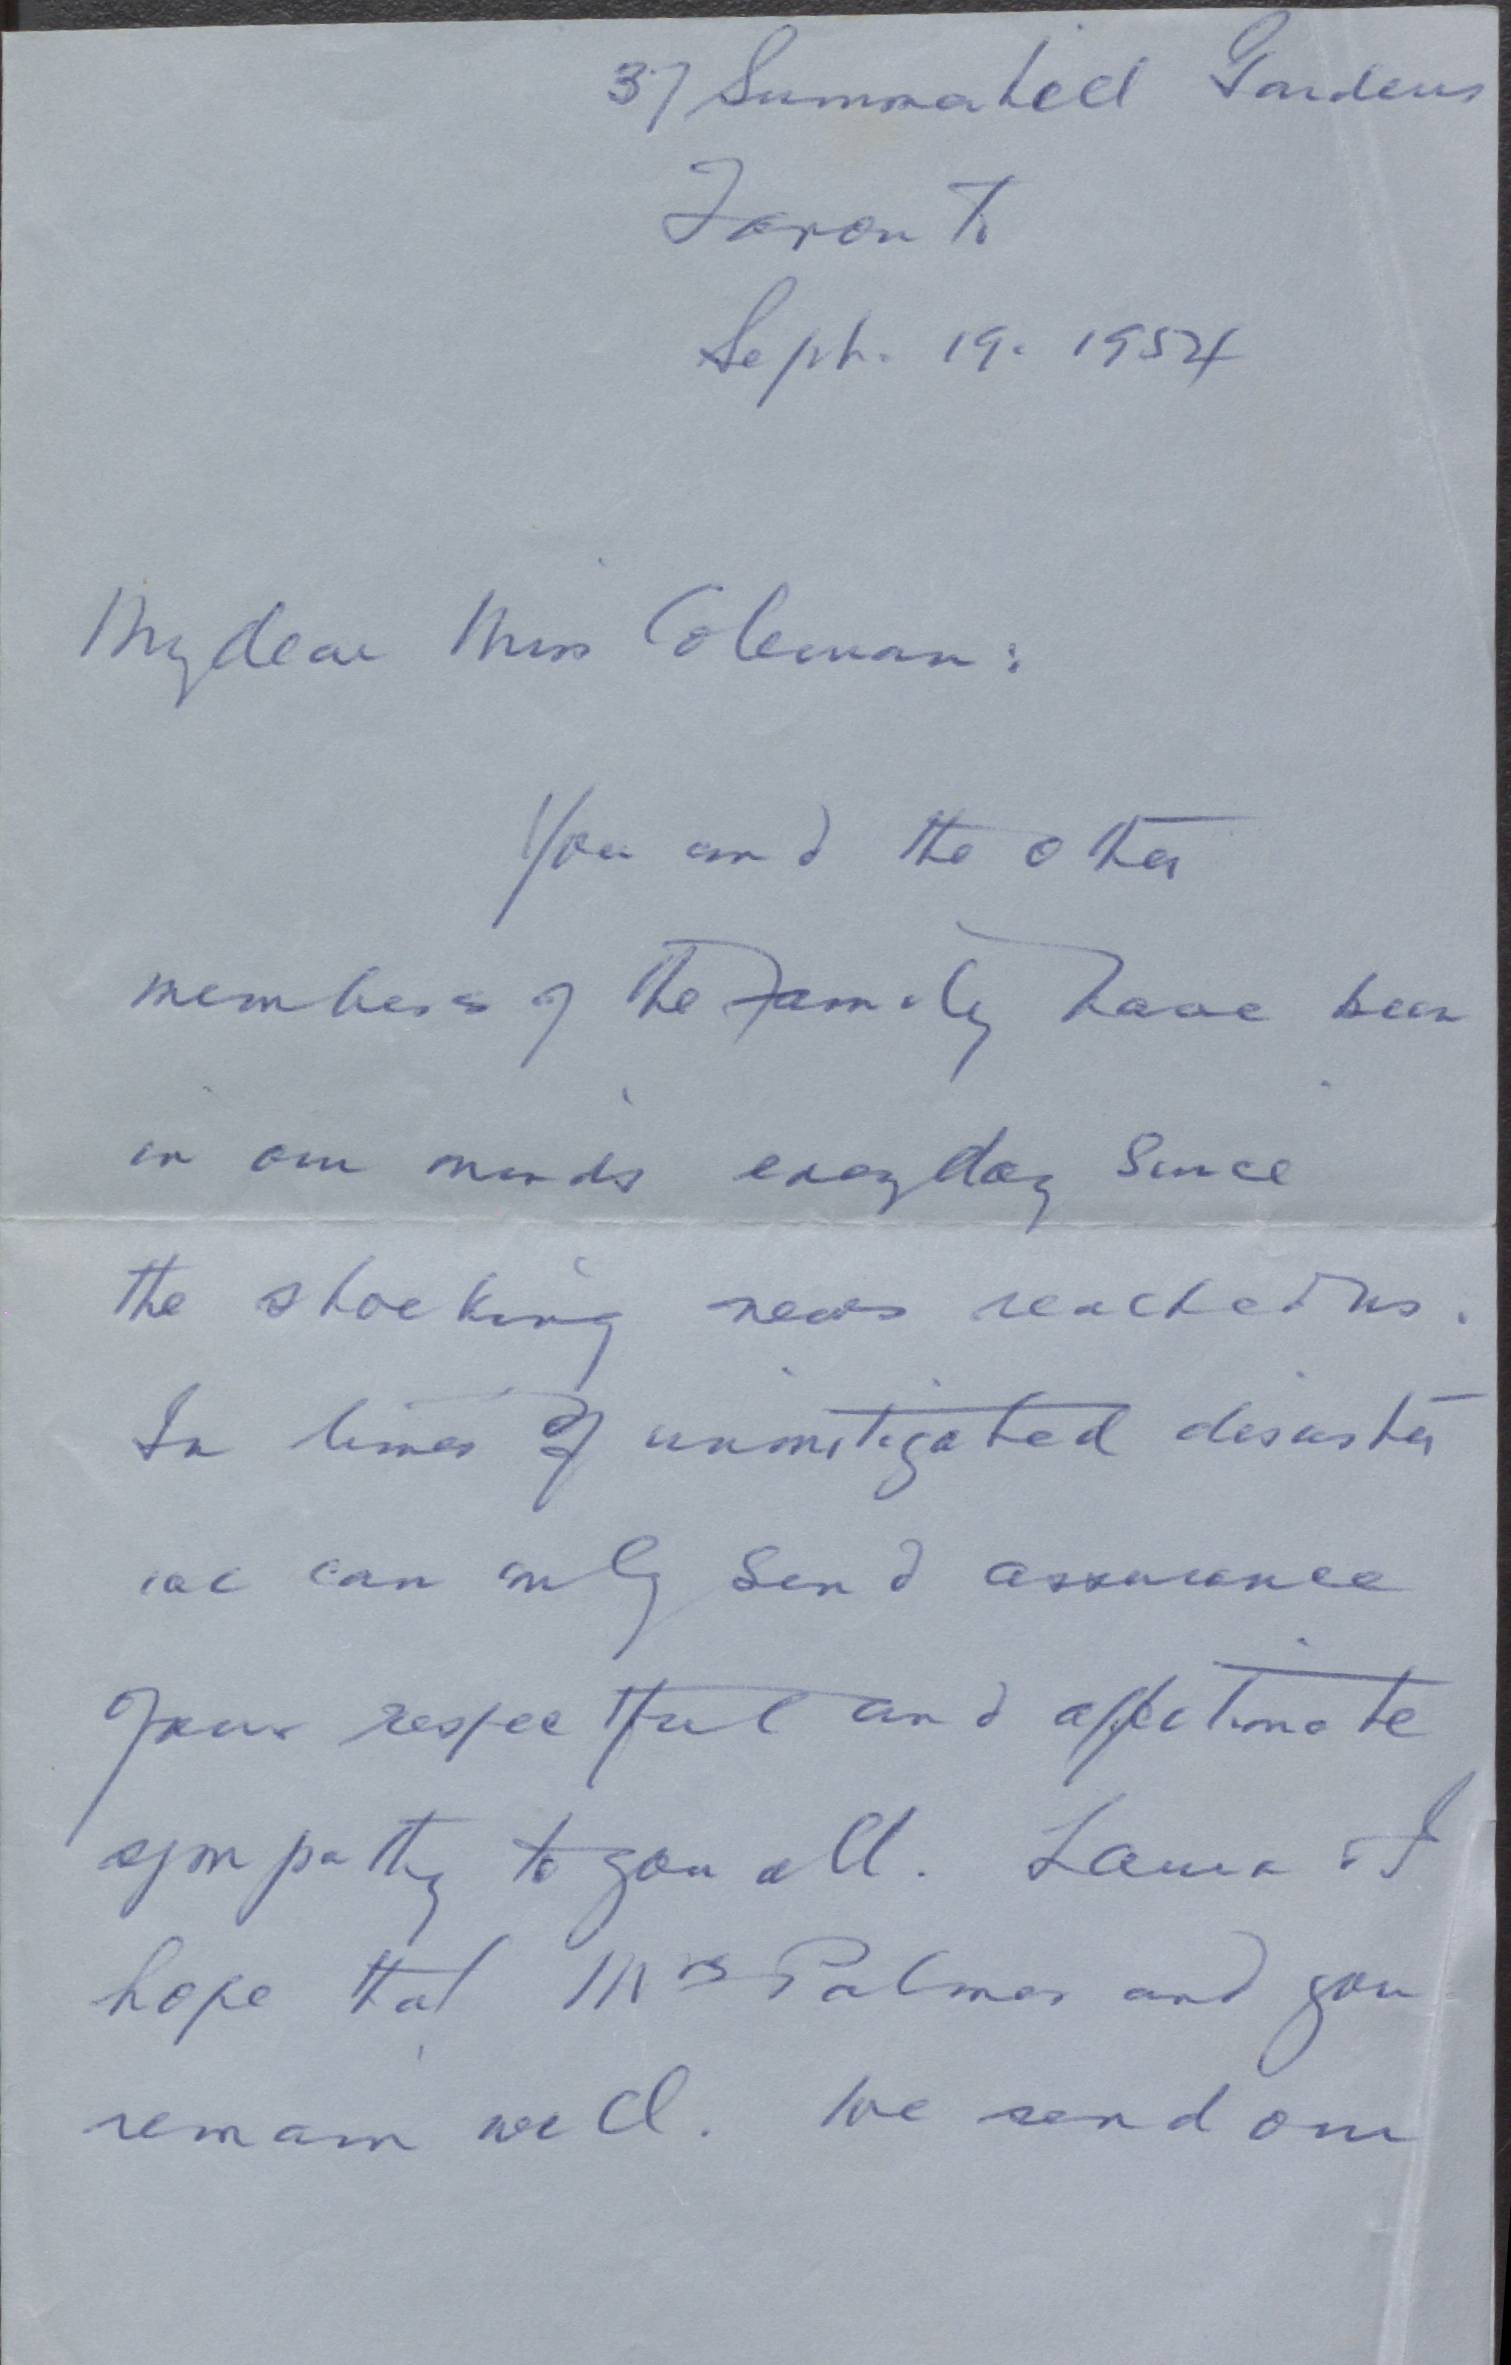 37 Summerhill Gardens
Toronto
Sept. 19. 1954
My dear Miss Coleman:
You and the other
members of the family have been
in our minds everyday since
the shocking news reached us.
In times of unmitigated disaster
we can only send assurance
of our respectful and affectionate
sympathy to you all. Laura & I
hope that Mrs Palmer and you
remain well. We send our